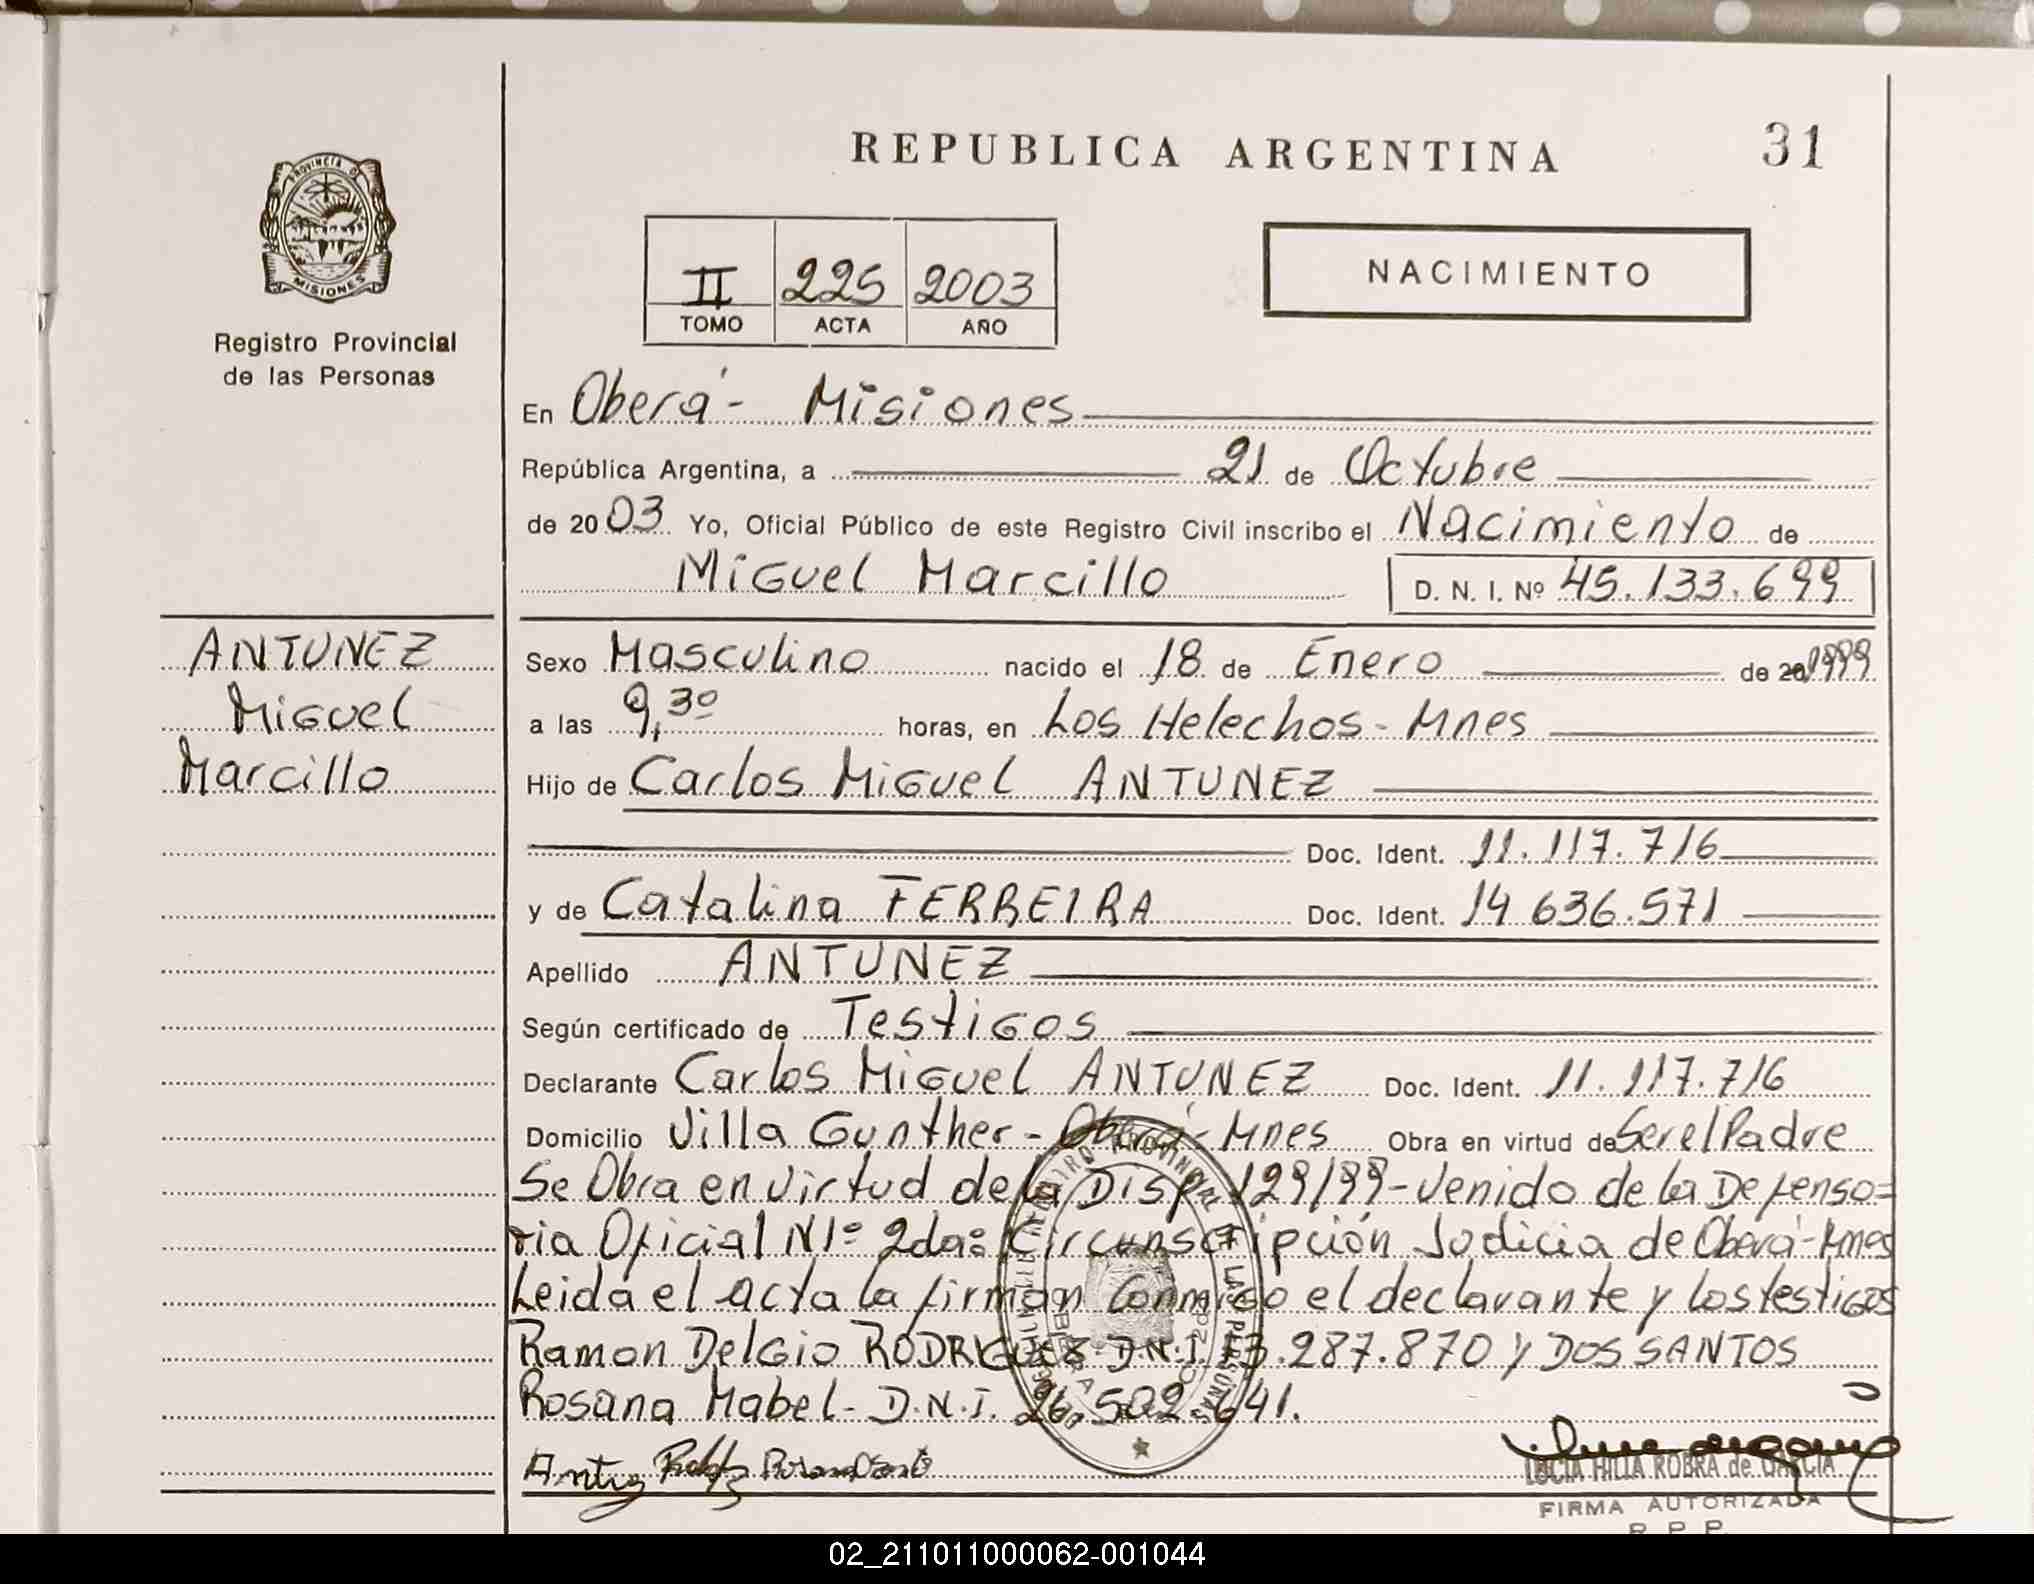 REPUBLICA ARGENTINA
31
PROVINCIA DE
MISIONES
Registro Provincial
de las Personas
II 225 2003
TOMO ACTA AÑO
NACIMIENTO
En Oberá - Misiones
República Argentina, a 21 de Octubre
de 2003 Yo, Oficial Público de este Registro Civil inscribo el Nacimiento de
Miguel Marcillo D. N. I. Nº 45.133.699
ANTUNEZ
Miguel
Marcillo
Sexo Masculino nacido el 18 de Enero de 20 1999
a las 9,30 horas, en Los Helechos - Mnes
Hijo de Carlos Miguel ANTUNEZ
Doc. Ident. 11.117.716
y de Catalina FERREIRA Doc. Ident. 14.636.571
Apellido ANTUNEZ
Según certificado de Testigos
Declarante Carlos Miguel ANTUNEZ Doc. Ident. 11.117.716
Domicilio Villa Gunther - Oberá - Mnes Obra en virtud de Ser el Padre
Se Obra en virtud de la Disp. 129/99 - Venido de la Defenso=
ria Oficial N1º 2da: Circunscripción Judicia de Oberá - Mnes
Leida el acta la firman conmigo el declarante y los testigos
Ramon Delgio RODRIGUEZ D.N.I. 13.287.870 y DOS SANTOS
Rosana Mabel - D.N.I. 26.502.641.
LUCIA HILIA ROBRA de GARCIA
FIRMA AUTORIZADA
R. P. P.
02_211011000062-001044